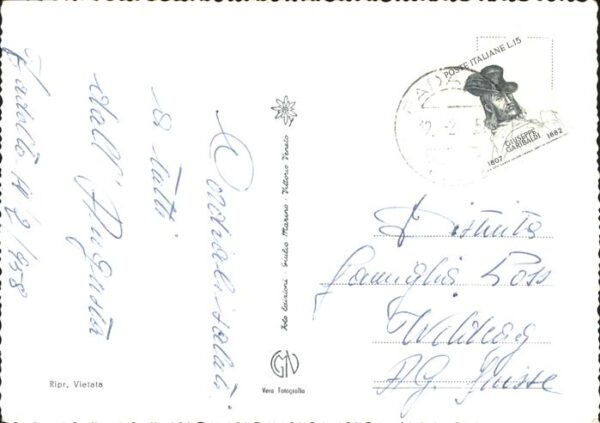 Cordiali saluti
a tutti
dall' Augusta
14/2/958
Foto Edizioni Giulio Marino - Vittorio Veneto
GMV
Vera Fotografia
Ripr. Vietata
POSTE ITALIANE L.15
GIUSEPPE
GARIBALDI
1807 1882
Distinta
Famiglia Loss
AG. Suisse